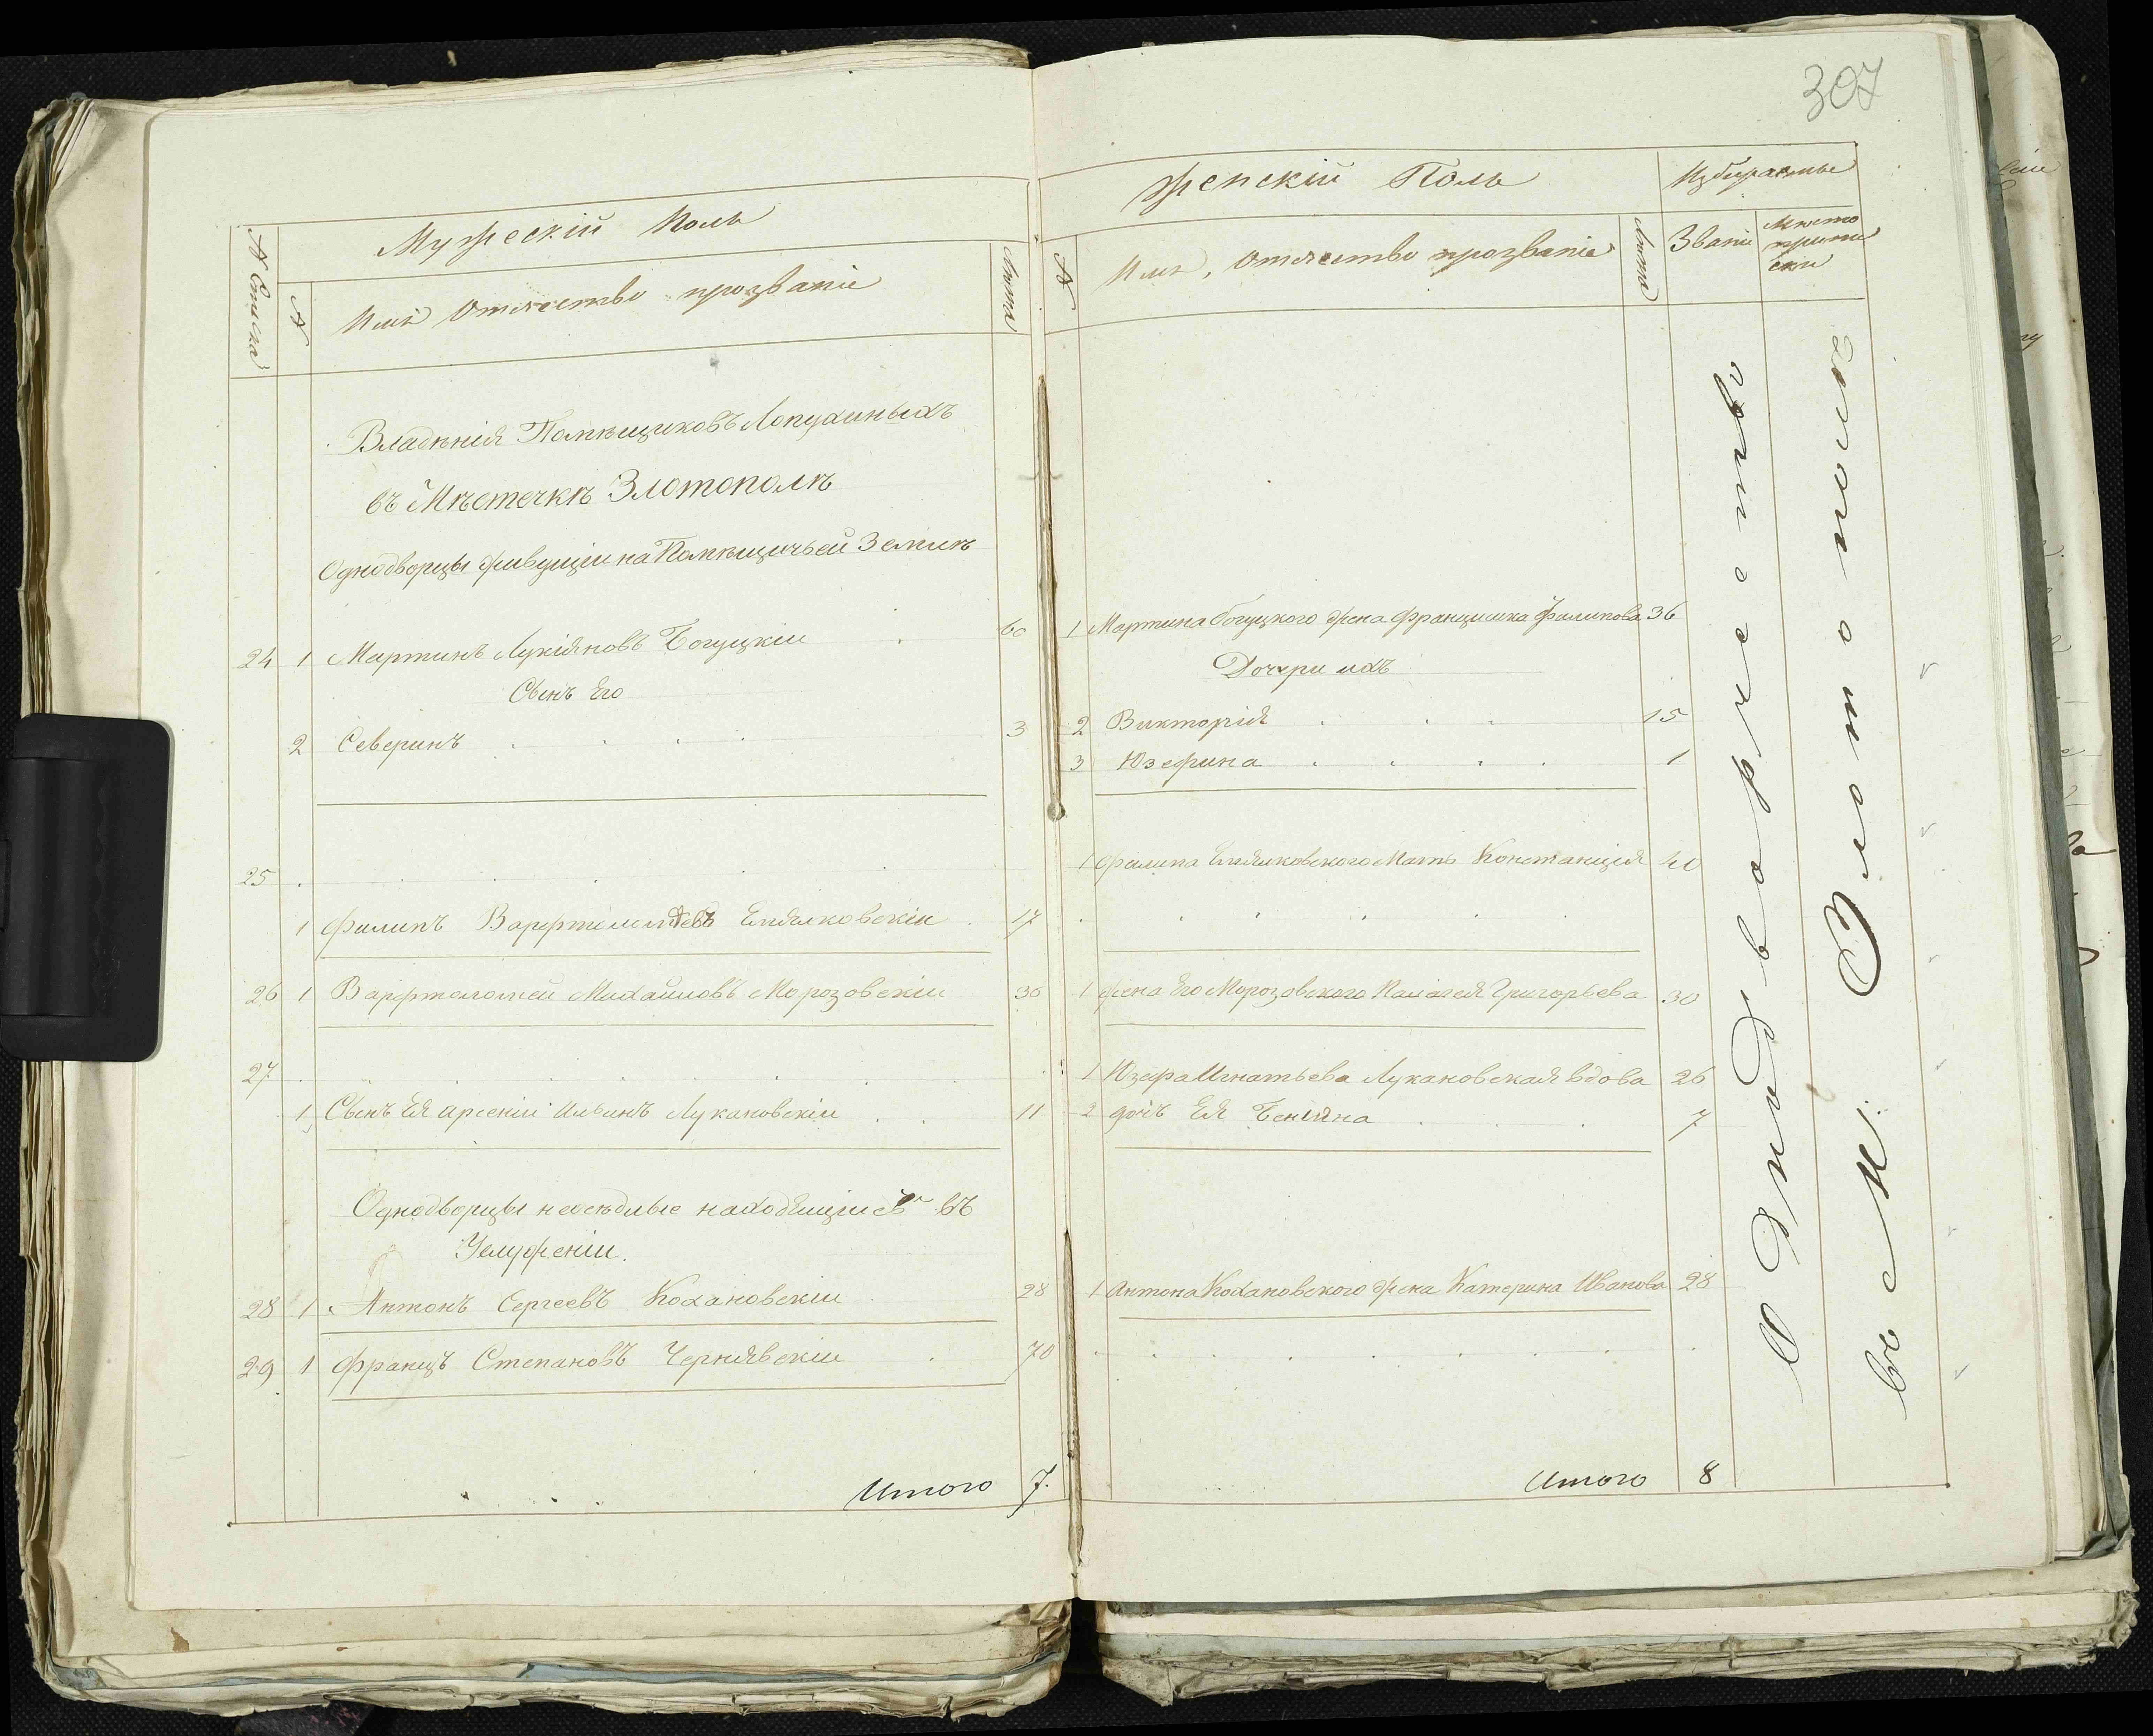 Мужескій Полъ
№ Списка
№
Имя Отчество прозваніе
Лѣта
Владѣнія Помѣщиковъ Лопухиныхъ
въ Мѣстечкѣ Златополѣ
Однодворцы живущіи на Помѣщичьей Землѣ
24 1 Мартинъ Лукіяновъ Богуцкіи 60
Сынъ Его
2 Северинъ 3
25
1 Филипъ 17
26 1 Варфтоломей Михайловъ Морозовскіи 30
27
1 Сынъ Ея Арсеніи Ильинъ Лукановскіи 11
Однодворцы неосѣдлые находящіися въ
Услуженіи.
28 1 Антонъ Сергеевъ Кохановскіи 28
29 1 Францъ Степановъ Чернявскіи 70
Итого 7.
307
Женскій Полъ
Избираемые
№
Имя, Отчество прозваніе
Лѣта
Званіе
Мѣсто
приписки
1 Мартина Богуцкого жена Францишка Филипова 36
Дочери ихъ
2 Викторія 15
3 Юзефина 1
1 Филипа Мать Констанція 40
1 Жена Его Морозовского Палагея Григорьева 30
1 Юзефа Игнатьева Лукановская вдова 26
2 дочь Ея 7
1 Антона Кохановского жена Катерина Иванова 28
Итого 8
Однодворчество
въ М. Златополѣ